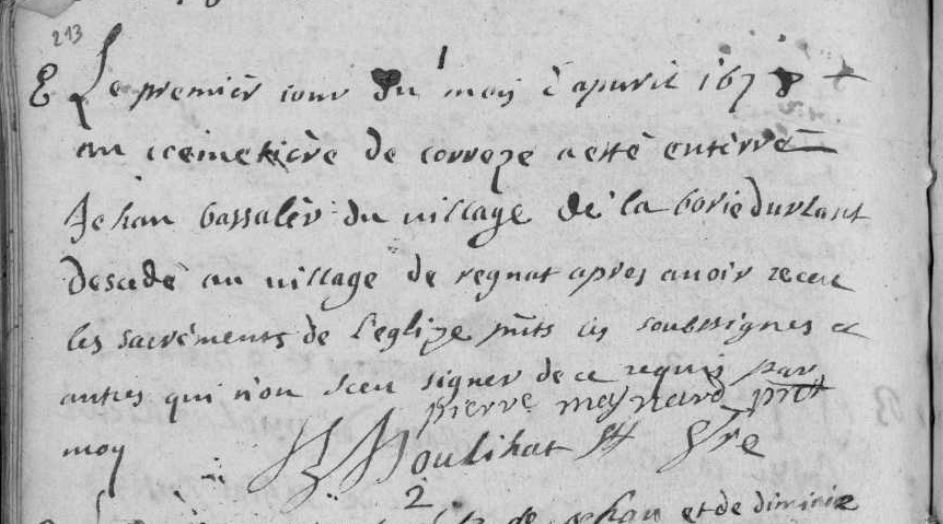 213
1
E Le premier iour du mois d apuril 1678
au cemetiere de correze a esté enterré
Jehan bassaler du uillage de la borie durlant
Descedé au uillage de regnat apres auoir receu
les sacréments de l'eglize pnts les soubssignes et
autres qui n'on sceu signer de ce requis par
moy
pierre maynard pnt
Soulihat ptre
2
et de diminie